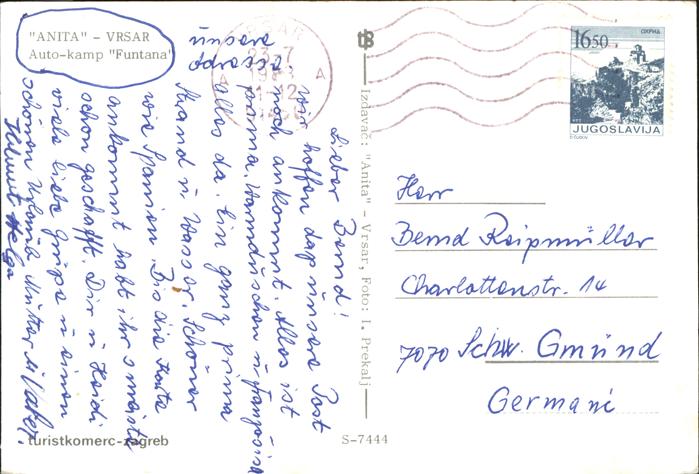 "ANITA" – VRSAR
Auto-kamp "Funtana"
unsere
Adresse
VRSAR
23-7
1983
11-12
A
A
Lieber Bernd!
wir hoffen daß unsere Post
noch ankommt. Alles ist
prima. Warmduschen u.
alles da. Ein ganz prima
Strand u Wasser. Schöner
wie Spanien. Bis die Karte
ankommt habt ihr s meiste
schon geschafft. Dir u Heidi
viele liebe Grüße u einen
schönen Urlaub Mutter u Vater.
Helmut Helga
Izdavač: "Anita" – Vrsar, Foto: I. Prekalj
ОХРИД
16.50
JUGOSLAVIJA
Herr
Bernd Reipmüller
Charlottenstr. 14
7070 Schw. Gmünd
Germani
turistkomerc-zagreb
S-7444